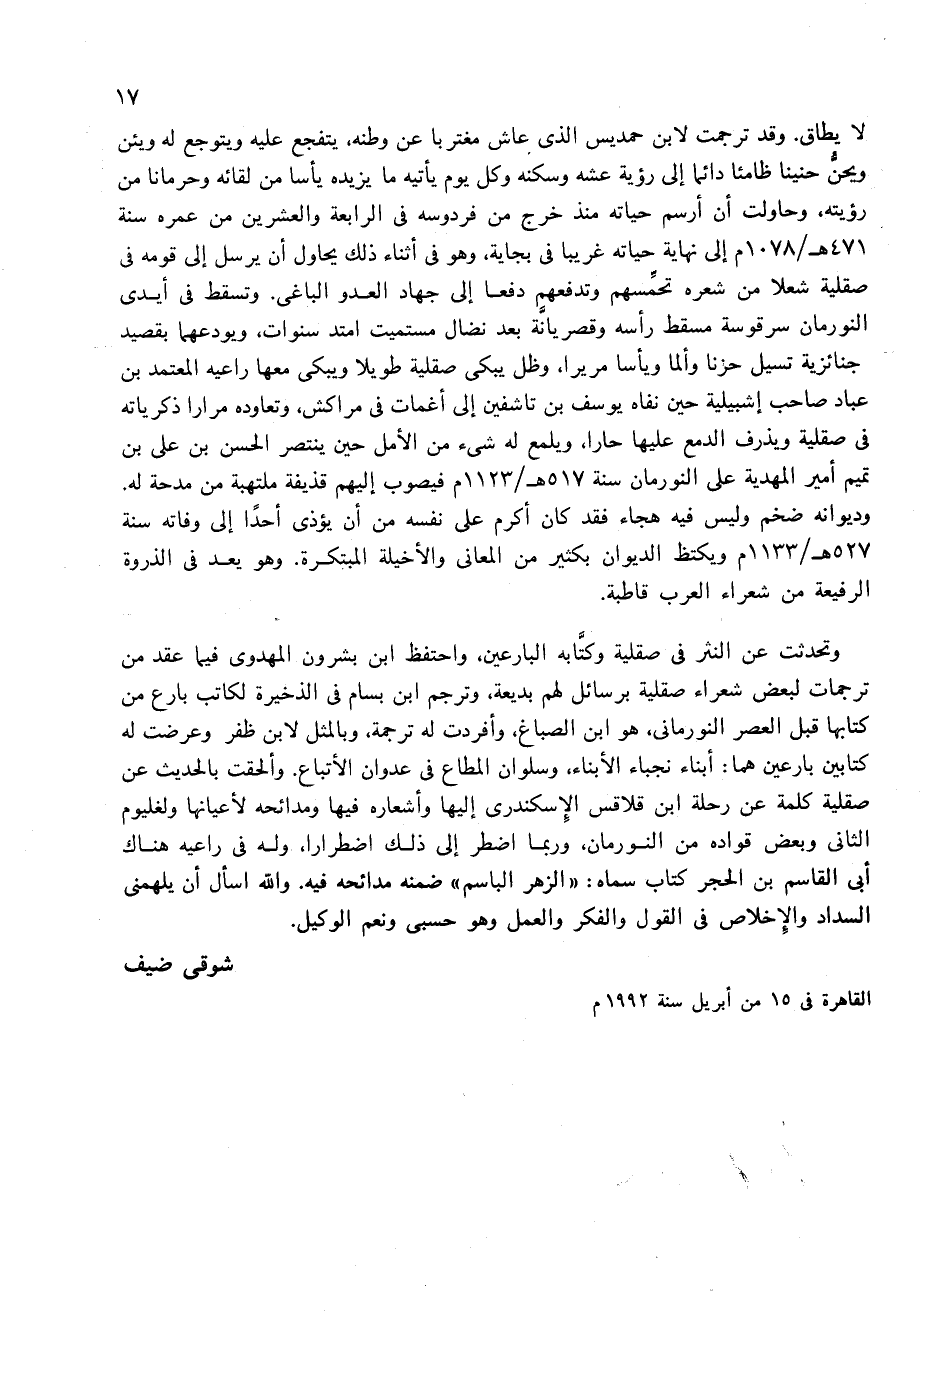 ١٧
لا يطاق. وقد ترجمت لابن حمديس الذى عاش مغتربا عن وطنه، يتفجع عليه ويتوجع له ويئن
ويحنُّ حنينا ظامئا دائما إلى رؤية عشه وسكنه وكل يوم يأتيه ما يزيده يأسا من لقائه وحرمانا من
رؤيته، وحاولت أن أرسم حياته منذ خرج من فردوسه فى الرابعة والعشرين من عمره سنة
٤٧١هـ/١٠٧٨م إلى نهاية حياته غريبا فى بجاية، وهو فى أثناء ذلك يحاول أن يرسل إلى قومه فى
صقلية شعلا من شعره تحمِّسهم وتدفعهم دفعـا إلى جهاد العـدو الباغى. وتسقط فى أيـدى
النورمان سرقوسة مسقط رأسه وقصريانَّة بعد نضال مستميت امتد سنوات، ويودعهما بقصيد
جنائزية تسيل حزنا وألما ويأسا مريرا، وظل يبكى صقلية طويلا ويبكى معها راعيه المعتمد بن
عباد صاحب إشبيلية حين نفاه يوسف بن تاشفين إلى أغمات فى مراكش، وتعاوده مرارا ذكرياته
فى صقلية ويذرف الدمع عليها حارا، ويلمع له شىء من الأمل حين ينتصر الحسن بن على بن
تميم أمير المهدية على النورمان سنة ٥١٧هـ/١١٢٣م فيصوب إليهم قذيفة ملتهبة من مدحة له.
وديوانه ضخم وليس فيه هجاء فقد كان أكرم على نفسه من أن يؤذى أحدًا إلى وفاته سنة
٥٢٧هـ/١١٣٣م ويكتظ الديوان بكثير من المعانى والأخيلة المبتكـرة. وهو يعـد فى الذروة
الرفيعة من شعراء العرب قاطبة.
وتحدثت عن النثر فى صقلية وكتَّابه البارعين، واحتفظ ابن بشرون المهدوى فيما عقد من
ترجمات لبعض شعراء صقلية برسائل لهم بديعة، وترجم ابن بسام فى الذخيرة لكاتب بارع من
كتابها قبل العصر النورمانى، هو ابن الصباغ، وأفردت له ترجمة، وبالمثل لابن ظفر وعرضت له
كتابين بارعين هما: أبناء نجباء الأبناء، وسلوان المطاع فى عدوان الأتباع. وألحقت بالحديث عن
صقلية كلمة عن رحلة ابن قلاقس الإسكندرى إليها وأشعاره فيها ومدائحه لأعيانها ولغليوم
الثانى وبعض قواده من النـورمان، وربمـا اضطر إلى ذلـك اضطرارا، ولـه فى راعيه هنـاك
أبى القاسم بن الحجر كتاب سماه: «الزهر الباسم» ضمنه مدائحه فيه. والله اسأل أن يلهمنى
السداد والإخلاص فى القول والفكر والعمل وهو حسبى ونعم الوكيل.
شوقى ضيف
القاهرة فى ١٥ من أبريل سنة ١٩٩٢م